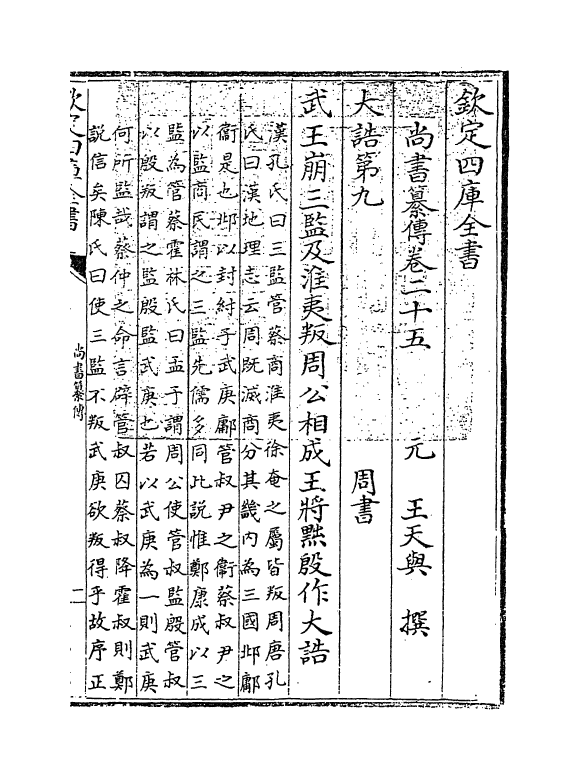 欽定四庫全書
尚書纂傳卷二十五
元 王天與 撰
大誥第九
周書
武王崩三監及淮夷叛周公相成王將黜殷作大誥
漢孔氏曰三監管蔡商淮夷徐奄之屬皆叛周唐孔
氏曰漢地理志云周既滅商分其畿内為三國邶鄘
衛是也邶以封紂子武庚鄘管叔尹之衛蔡叔尹之
以監商民謂之三監先儒多同此説惟鄭康成以三
監為管蔡霍林氏曰孟子謂周公使管叔監殷管叔
以殷叛謂之監殷監武庚也若以武庚為一則武庚
何所監哉蔡仲之命言辟管叔囚蔡叔降霍叔則鄭
説信矣陳氏曰使三監不叛武庚欲叛得乎故序正
欽定四庫全書
尚書纂傳
二